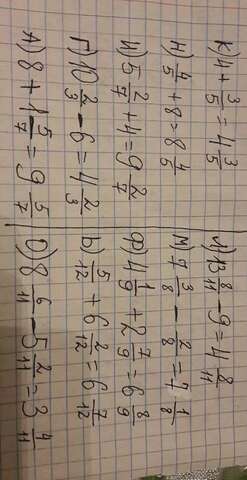 К) 4 + 3/5 = 4 3/5
Н) 4/5 + 8 = 8 4/5
И) 5 2/7 + 4 = 9 2/7
Г) 10 2/3 - 6 = 4 2/3
А) 8 + 1 5/7 = 9 5/7
Л) 13 8/11 - 9 = 4 8/11
М) 7 3/8 - 2/8 = 7 1/8
Ф) 4 1/9 + 2 7/9 = 6 8/9
Ь) 5/12 + 6 2/12 = 6 7/12
О) 8 6/11 - 5 2/11 = 3 4/11